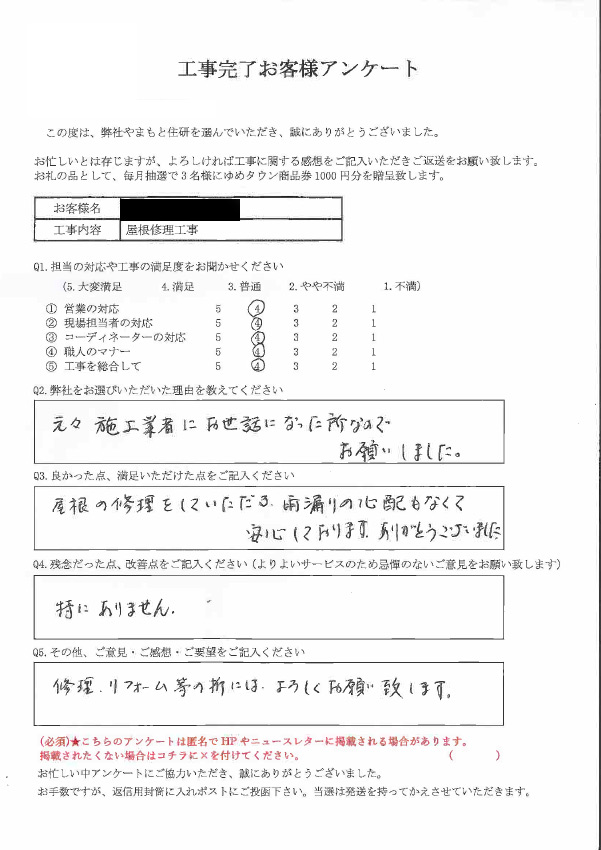 工事完了お客様アンケート
この度は、弊社やまもと住研を選んでいただき、誠にありがとうございました。
お忙しいとは存じますが、よろしければ工事に関する感想をご記入いただきご返送をお願い致します。
お礼の品として、毎月抽選で3名様にゆめタウン商品券1000円分を贈呈致します。
お客様名
工事内容 屋根修理工事
Q1.担当の対応や工事の満足度をお聞かせください
(5.大変満足 4.満足 3.普通 2.やや不満 1.不満)
① 営業の対応 5 4 3 2 1
② 現場担当者の対応 5 4 3 2 1
③ コーディネーターの対応 5 4 3 2 1
④ 職人のマナー 5 4 3 2 1
⑤ 工事を総合して 5 4 3 2 1
Q2.弊社をお選びいただいた理由を教えてください
元々施工業者にお世話になった所なので
お願いしました。
Q3.良かった点、満足いただけた点をご記入ください
屋根の修理をしていただき、雨漏りの心配もなくて
安心しております。ありがとうございました
Q4.残念だった点、改善点をご記入ください(よりよいサービスのため忌憚のないご意見をお願い致します)
特にありません.
Q5.その他、ご意見・ご感想・ご要望をご記入ください
修理、リフォーム等の折には、よろしくお願い致します。
(必須)★こちらのアンケートは匿名でHPやニュースレターに掲載される場合があります。
掲載されたくない場合はコチラに×を付けてください。 ( )
お忙しい中アンケートにご協力いただき、誠にありがとうございました。
お手数ですが、返信用封筒に入れポストにご投函下さい。当選は発送を持ってかえさせていただきます。